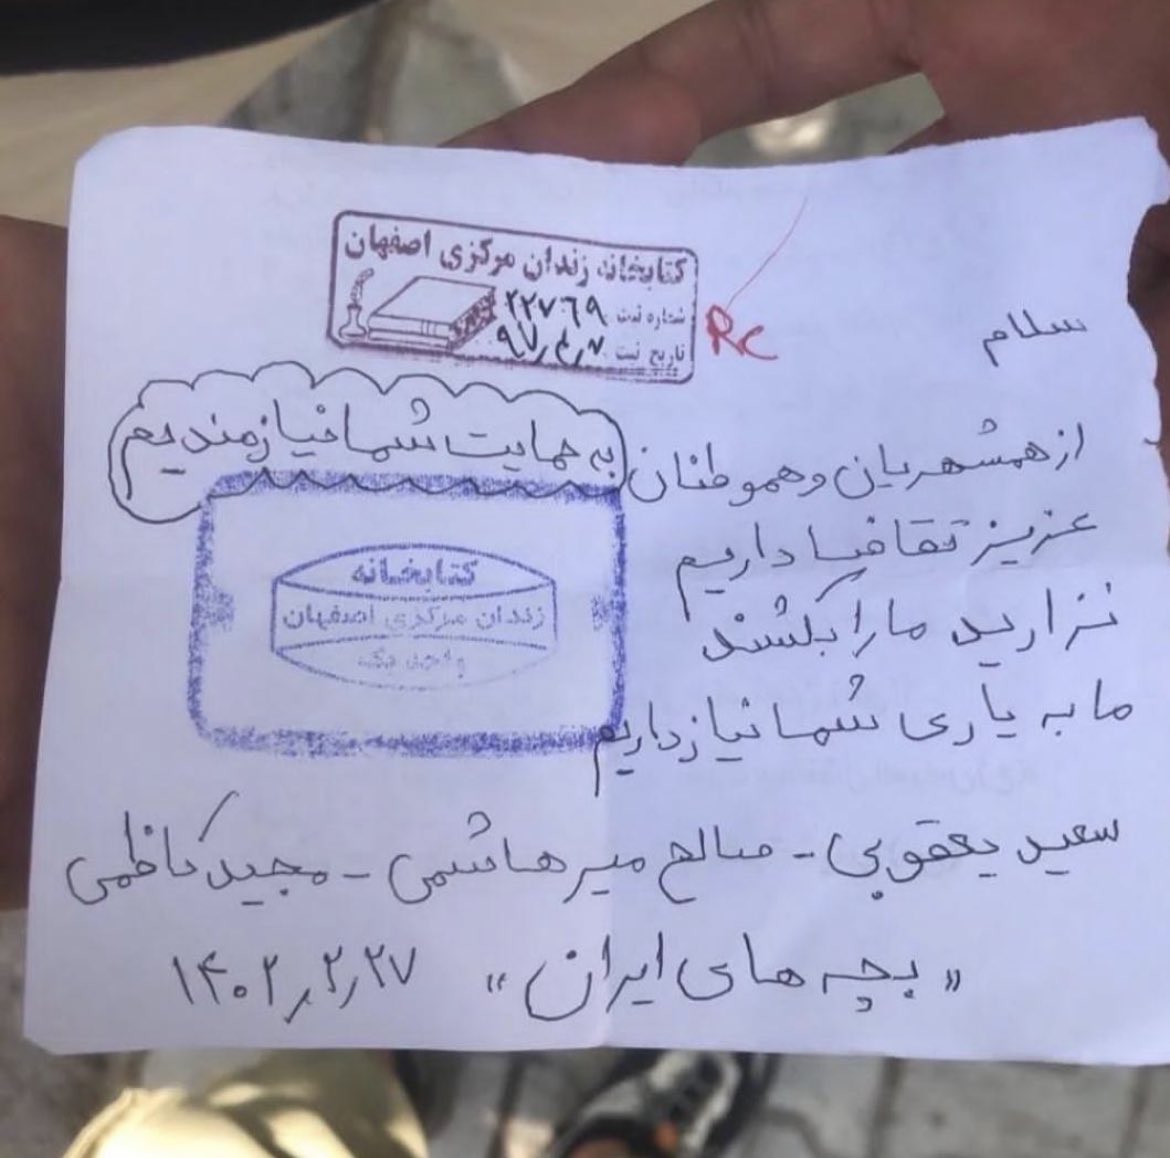 کتابخانه زندان مرکزی اصفهان
شماره ثبت ۲۲۷۶۹
تاریخ ثبت ۹۷٫۴٫۷
RC
سلام
از همشهریان و هموطنان به حمایت شما نیازمندیم
عزیز تقاضا داریم
نزارید ما را بکشند
ما به یاری شما نیاز داریم
کتابخانه
زندان مرکزی اصفهان
واحد یک
سعید یعقوبی - صالح میرهاشمی - مجید کاظمی
«بچه های ایران» ۱۴۰۲٫۲٫۲۷